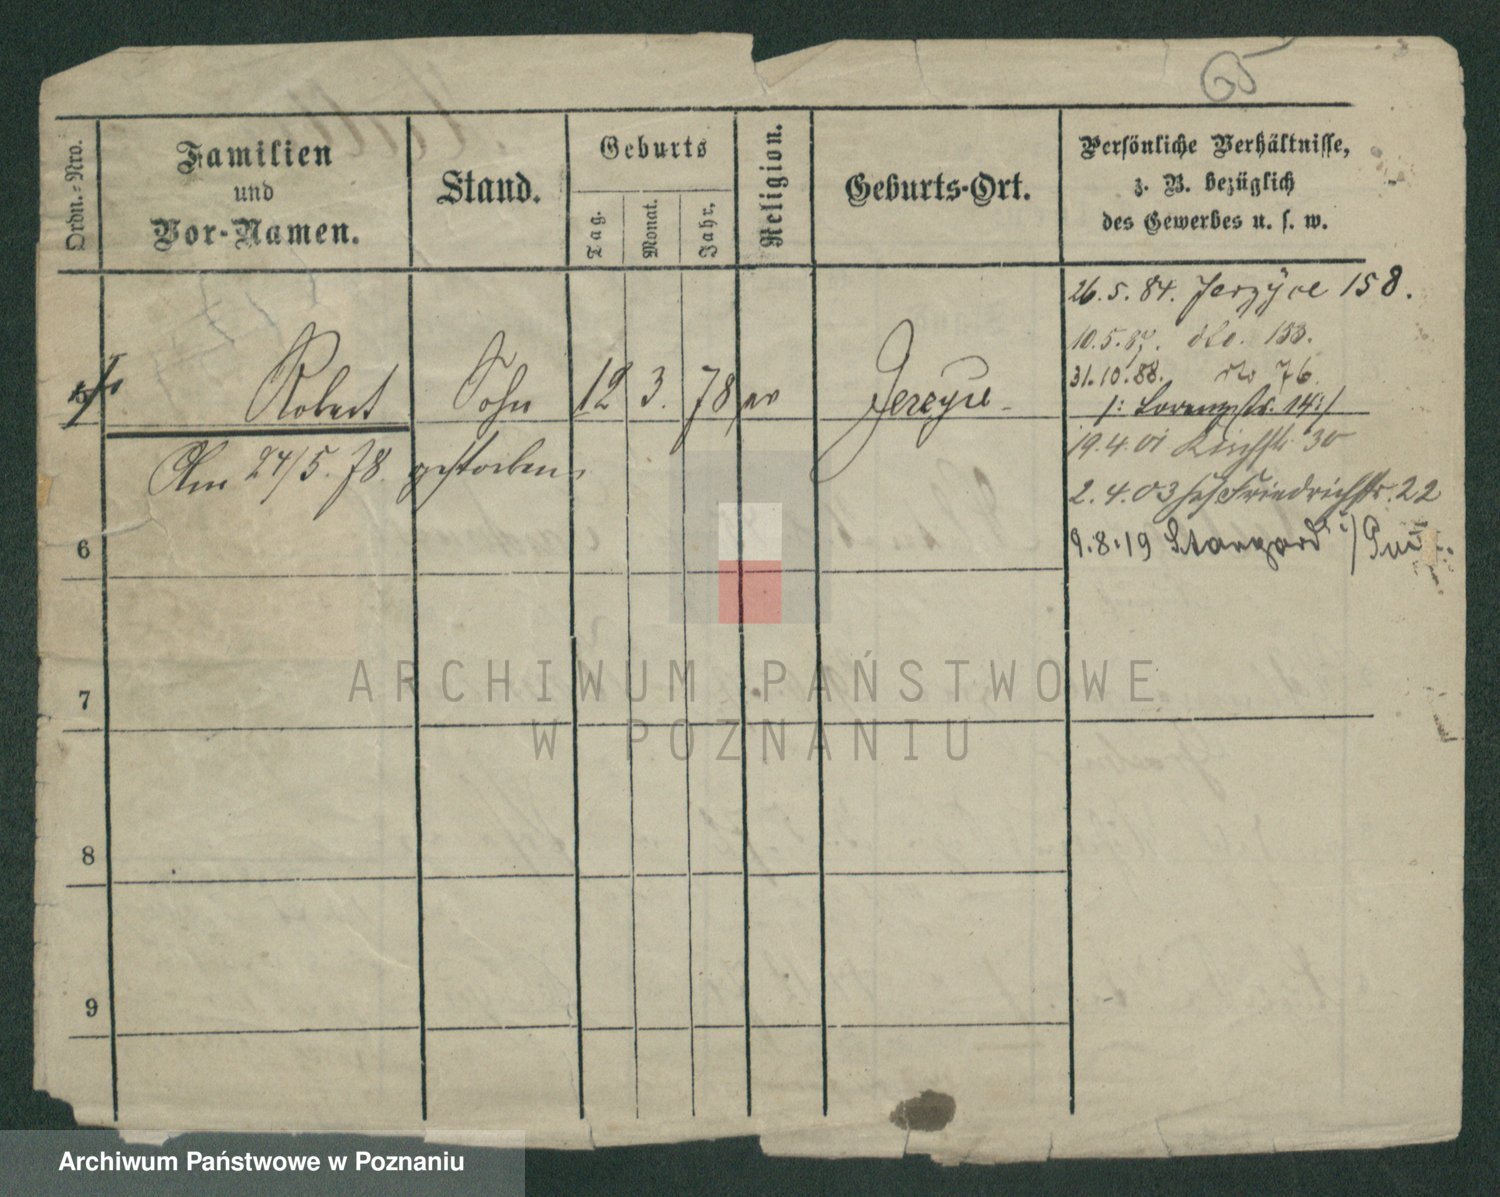 65
Ordn.-Nro.
Familien
und
Vor-Namen.
Stand.
Geburts
Tag.
Monat.
Jahr.
Religion.
Geburts-Ort.
Persönliche Verhältnisse,
z. B. bezüglich
des Gewerbes u. s. w.
26.5.84. Jerzyce 158.
10.5.87. dto. 153.
31.10.88. dto 76.
/: Lorenzstr. 14 :/
Robert Sohn 12 3. 78 ev Jerzyce
19.4.01 Kirchstr. 30
Am 24/5. 78. gestorben.
2.4.03 Friedrichstr. 22
9.8.19 Stargard i/
6
7
8
9
ARCHIWUM PAŃSTWOWE
W POZNANIU
Archiwum Państwowe w Poznaniu